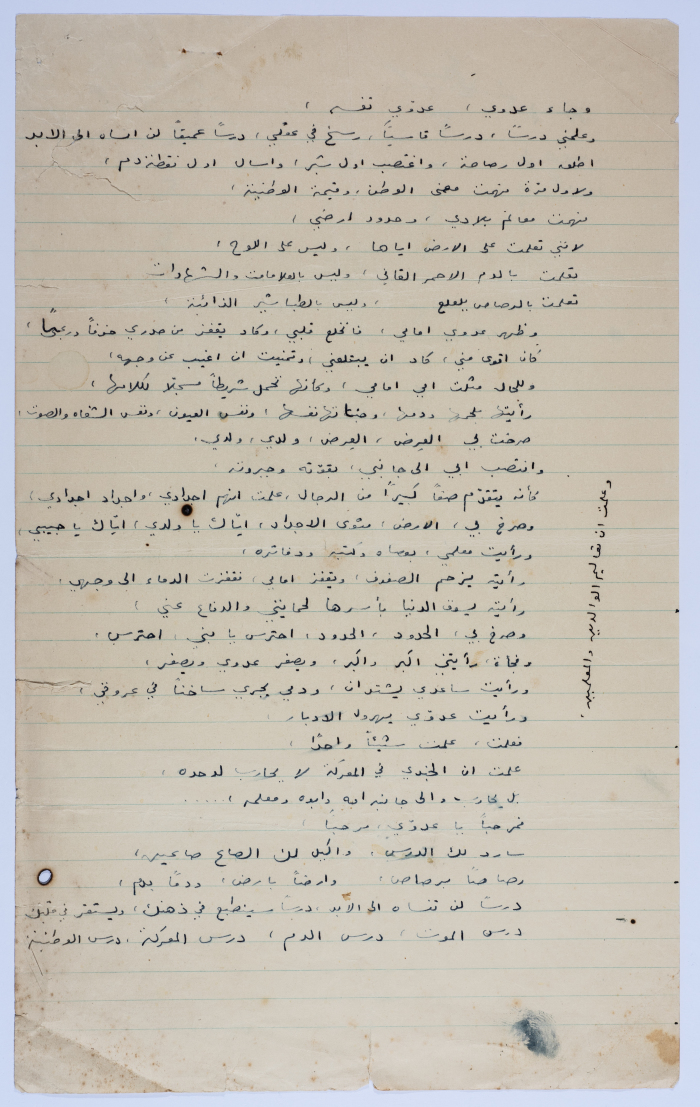 وجاء عدوي ، عدوّي نفسه ،
وعلمني درسًا ، درسًا قاسيًا ، رسخ في عقلي ، درسًا عميقًا لن انساه الى الابد
اطلق اول رصاصة ، واغتصب اول شبر ، واسال اول نقطة دم ،
ولاول مرّة فهمت معنى الوطن ، وقيمة الوطنية ،
فهمت معالم بلادي ، وحدود ارضي ،
لانني تعلمت على الارض اياها ، وليس على اللوح ،
تعلمت بالدم الاحمر القاني ، وليس بالعلامات والشهادات
تعلمت بالرصاص يلعلع ، وليس بالطباشير الذائبة ،
وظهر عدوي امامي ، فانخلع قلبي ، وكاد يقفز من صدري خوفًا ورعبًا ،
كان اقوى مني ، كاد ان يبتلعني ، وتمنيت ان اغيب عن وجهه ،
وللحال مثلت امي امامي ، وكانها تحمل شريطًا مسجلا لكلامها ،
رأيتها بلحمها ودمها ، نفسها ، ونفس العيون ، ونفس الشفاه والصوت ،
صرخت بي العرض ، العرض ، ولدي ، ولدي ،
وانتصب ابي الى جانبي ، بقوّته وجبروته ،
كأنه يتقدّم صفًا كبيرًا من الرجال ، علمت انهم اجدادي ، واجداد اجدادي ،
وصرخ بي ، الارض ، مثوى الاجداد ، ايّاك يا ولدي ، ايّاك يا حبيبي ،
ورأيت معلمي ، بعصاه وكتبه ودفاتره ،
رأيته يزحم الصفوف ، ويقفز امامي ، فقفزت الدماء الى وجهي ،
رأيته يسوق الدنيا بأسرها لحمايتي والدفاع عني ،
وصرخ بي ، الحدود ، الحدود ، احترس يا بني ، احترس ،
وفجاة ، رأيتني اكبر واكبر ، ويصغر عدوي ويصغر ،
ورأيت ساعدي يشتدان ، ودمي يجري ساخنًا في عروقي ،
ورأيت عدوّي يهرول الادبار
فعلمت ، علمت شيئًا واحدًا ،
علمت ان الجندي في المعركة لا يحارب لوحده ،
بل يحارب والى جانبه امه وابوه ومعلمه ، .....
فمرحبًا يا عدوّي ، مرحبًا ،
سارد لك الدرس ، واكيل لك الصاع صاعين ،
رصاصًا برصاص ، وارضًا بارض ، ودمًا بدم ،
درسًا لن تنساه الى الابد ، درسًا سينطبع في ذهنك ، ويستقر في قلبك
درس الموت ، درس الدم ، درس المعركة ، درس الوطنية
وعلمت ان تعاليم الوالدين والمعلمين ،